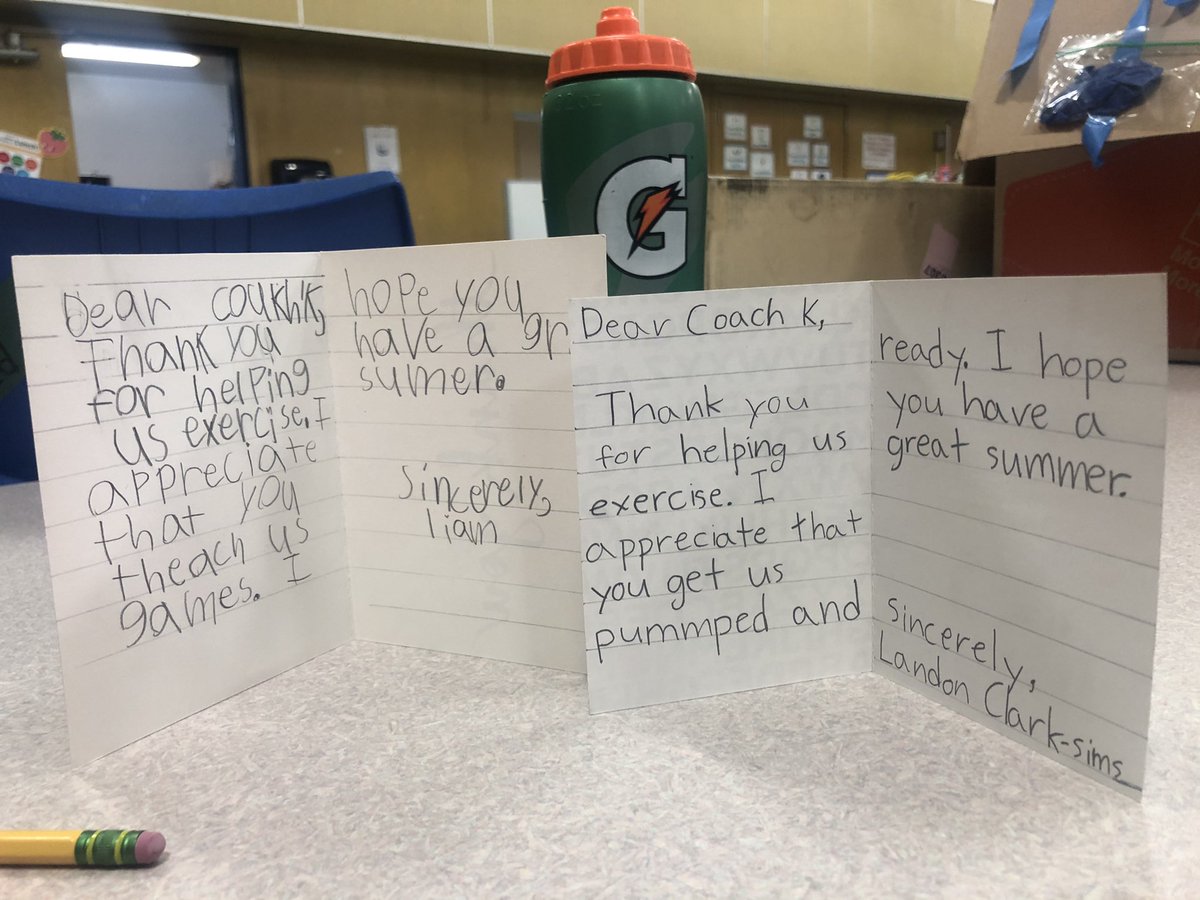 Dear coukh'k,
Thank you
for helping
us exercise. I
appreciate
that you
theach us
games. I
hope you
have a gr
sumer.
sincerely,
liam
Dear Coach K,
Thank you
for helping us
exercise. I
appreciate that
you get us
pummped and
ready. I hope
you have a
great summer.
sincerely,
Landon Clark-sims
G